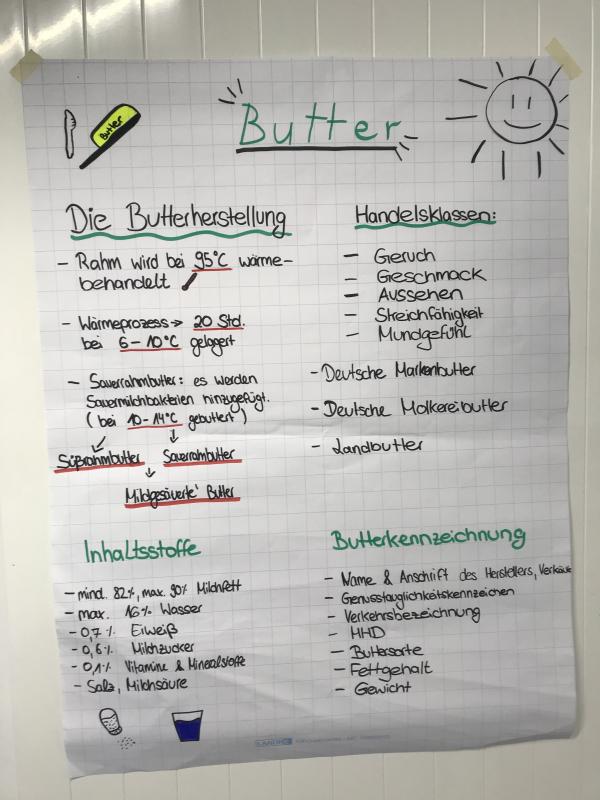 Butter
Butter
Die Butterherstellung
- Rahm wird bei 95°C wärme-
behandelt
- Wärmeprozess → 20 Std.
bei 6-10°C gelagert
- Sauerrahmbutter: es werden
Sauermilchbakterien hinzugefügt.
(bei 10-14°C gebuttert)
Süßrahmbutter Sauerrahmbutter
Mildgesäuerte Butter
Handelsklassen:
- Geruch
- Geschmack
- Aussehen
- Streichfähigkeit
- Mundgefühl
- Deutsche Markenbutter
- Deutsche Molkereibutter
- Landbutter
Inhaltsstoffe
- mind. 82%, max. 90% Milchfett
- max. 16% Wasser
- 0,7% Eiweiß
- 0,6% Milchzucker
- 0,1% Vitamine & Mineralstoffe
- Salz, Milchsäure
Butterkennzeichnung
- Name & Anschrift des Herstellers,
- Genusstauglichkeitskennzeichen
- Verkehrsbezeichnung
- MHD
- Buttersorte
- Fettgehalt
- Gewicht